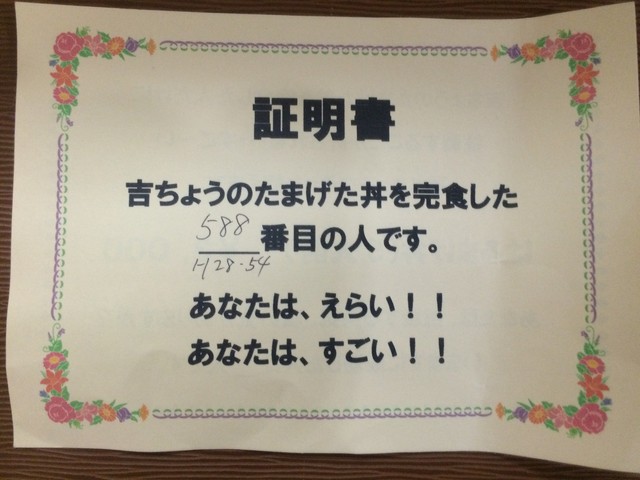 証明書
吉ちょうのたまげた丼を完食した
588番目の人です。
H28.5.4
あなたは、えらい！！
あなたは、すごい！！